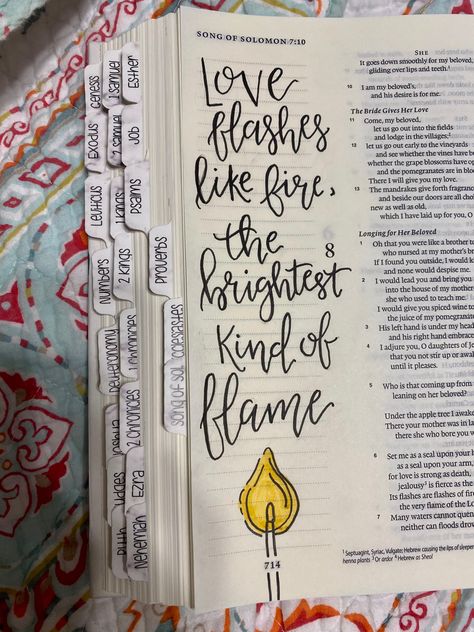 Genesis
Exodus
Leviticus
Numbers
Deuteronomy
Joshua
Judges
Ruth
1 Samuel
2 Samuel
1 Kings
2 Kings
1 Chronicles
2 Chronicles
Ezra
Nehemiah
Esther
Job
Psalms
Proverbs
Ecclesiastes
Song of Sol
SONG OF SOLOMON 7:10
Love
flashes
like fire,
the
brightest
kind of
flame
714
SHE
It goes down smoothly for my beloved,
gliding over lips and teeth.
10 I am my beloved's,
and his desire is for me.
The Bride Gives Her Love
11 Come, my beloved,
let us go out into the fields
and lodge in the villages;
12 let us go out early to the vineyards
and see whether the vines have
whether the grape blossoms have
and the pomegranates are in
There I will give you my love.
13 The mandrakes give forth
and beside our doors are all
new as well as old,
which I have laid up for you, O
Longing for Her Beloved
8
Oh that you were like a brother
who nursed at my mother's
If I found you outside, I would
and none would despise me.
2 I would lead you and bring you
into the house of my
she who used to teach me.
I would give you spiced wine to
the juice of my
3 His left hand is under my
and his right hand
4 I adjure you, O daughters of
that you not stir up or
until it pleases.
5 Who is that coming up from
leaning on her beloved?
Under the apple tree I
There your mother was in
there she who bore you
6 Set me as a seal upon your
as a seal upon your
for love is strong as death,
jealousy is fierce as the
Its flashes are flashes of
the very flame of the
7 Many waters cannot
neither can floods
1 Septuagint, Syriac, Vulgate; Hebrew causing the lips of
henna plants 2 Or ardor 4 Hebrew as Sheol